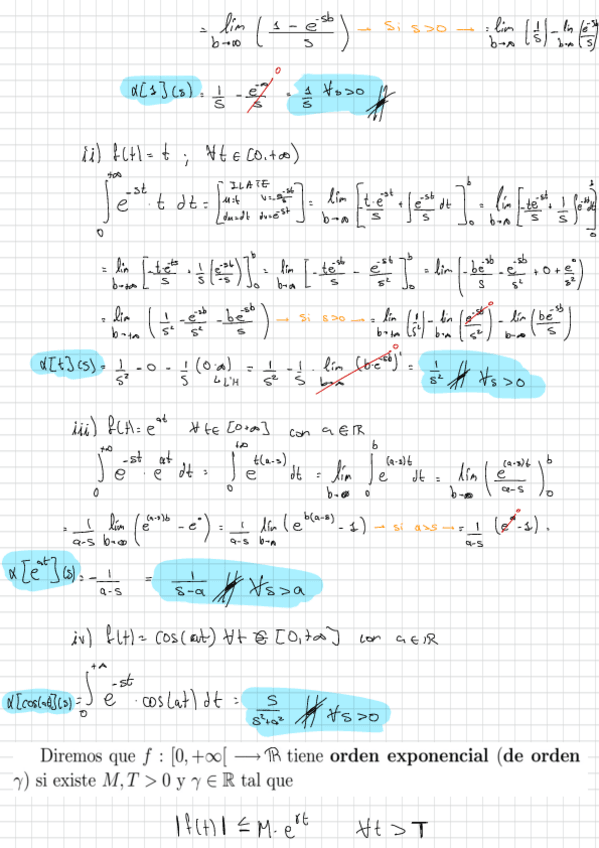 = lim b→∞ ( (1 - e^-sb) / s ) → Si s>0 → = lim b→∞ (1/s) - lim b→∞ (e^-sb / s)
α[1](s) = 1/s - e^-∞/s 0 = 1/s ∀s>0
ii) f(t) = t ; ∀t ∈ [0,+∞)
∫ 0 +∞ e^-st · t dt = [ ILATE u=t v= -e^-st/s du=dt dv=e^-st ] = lim b→∞ [ -t·e^-st / s + ∫ e^-st / s dt ] 0 b = lim b→∞ [ -te^-st / s + 1/s ∫ e^-st dt ] 0 b
= lim b→+∞ [ -t·e^-ts / s + 1/s (e^-st / -s) ] 0 b = lim b→∞ [ -te^-sb / s - e^-st / s² ] 0 b = lim ( -be^-sb / s - e^-sb / s² + 0 + e^0 / s² )
= lim b→+∞ ( 1/s² - e^-sb / s² - be^-sb / s ) → Si s>0 → = lim b→+∞ (1/s²) - lim b→∞ (e^-sb / s²) 0 - lim b→∞ (be^-sb / s)
α[t](s) = 1/s² - 0 - 1/s (0·∞) L'H = 1/s² - 1/s · lim b→∞ (b·e^-sb)' 0 = 1/s² ∀s>0
iii) f(t) = e^at ∀t∈[0+∞] con a∈ℝ
∫ 0 +∞ e^-st · e^at dt = ∫ 0 +∞ e^t(a-s) dt = lim b→∞ ∫ 0 b e^(a-s)t dt = lim b→∞ ( e^(a-s)t / a-s ) 0 b
= 1/a-s lim b→∞ ( e^(a-s)b - e^0 ) = 1/a-s lim b→∞ ( e^b(a-s) - 1 ) → si a>s → = 1/a-s ( e^-∞ 0 - 1 ) =
α[e^at](s) = - 1/a-s = 1/s-a ∀s>a
iv) f(t) = cos(at) ∀t ∈ [0,+∞] con a∈ℝ
α[cos(at)](s) = ∫ 0 +∞ e^-st · cos(at) dt = s / s²+a² ∀s>0
Diremos que f : [0, +∞[ ⟶ ℝ tiene orden exponencial (de orden
γ) si existe M, T > 0 y γ ∈ ℝ tal que
|f(t)| ≤ M · e^γt ∀t > T